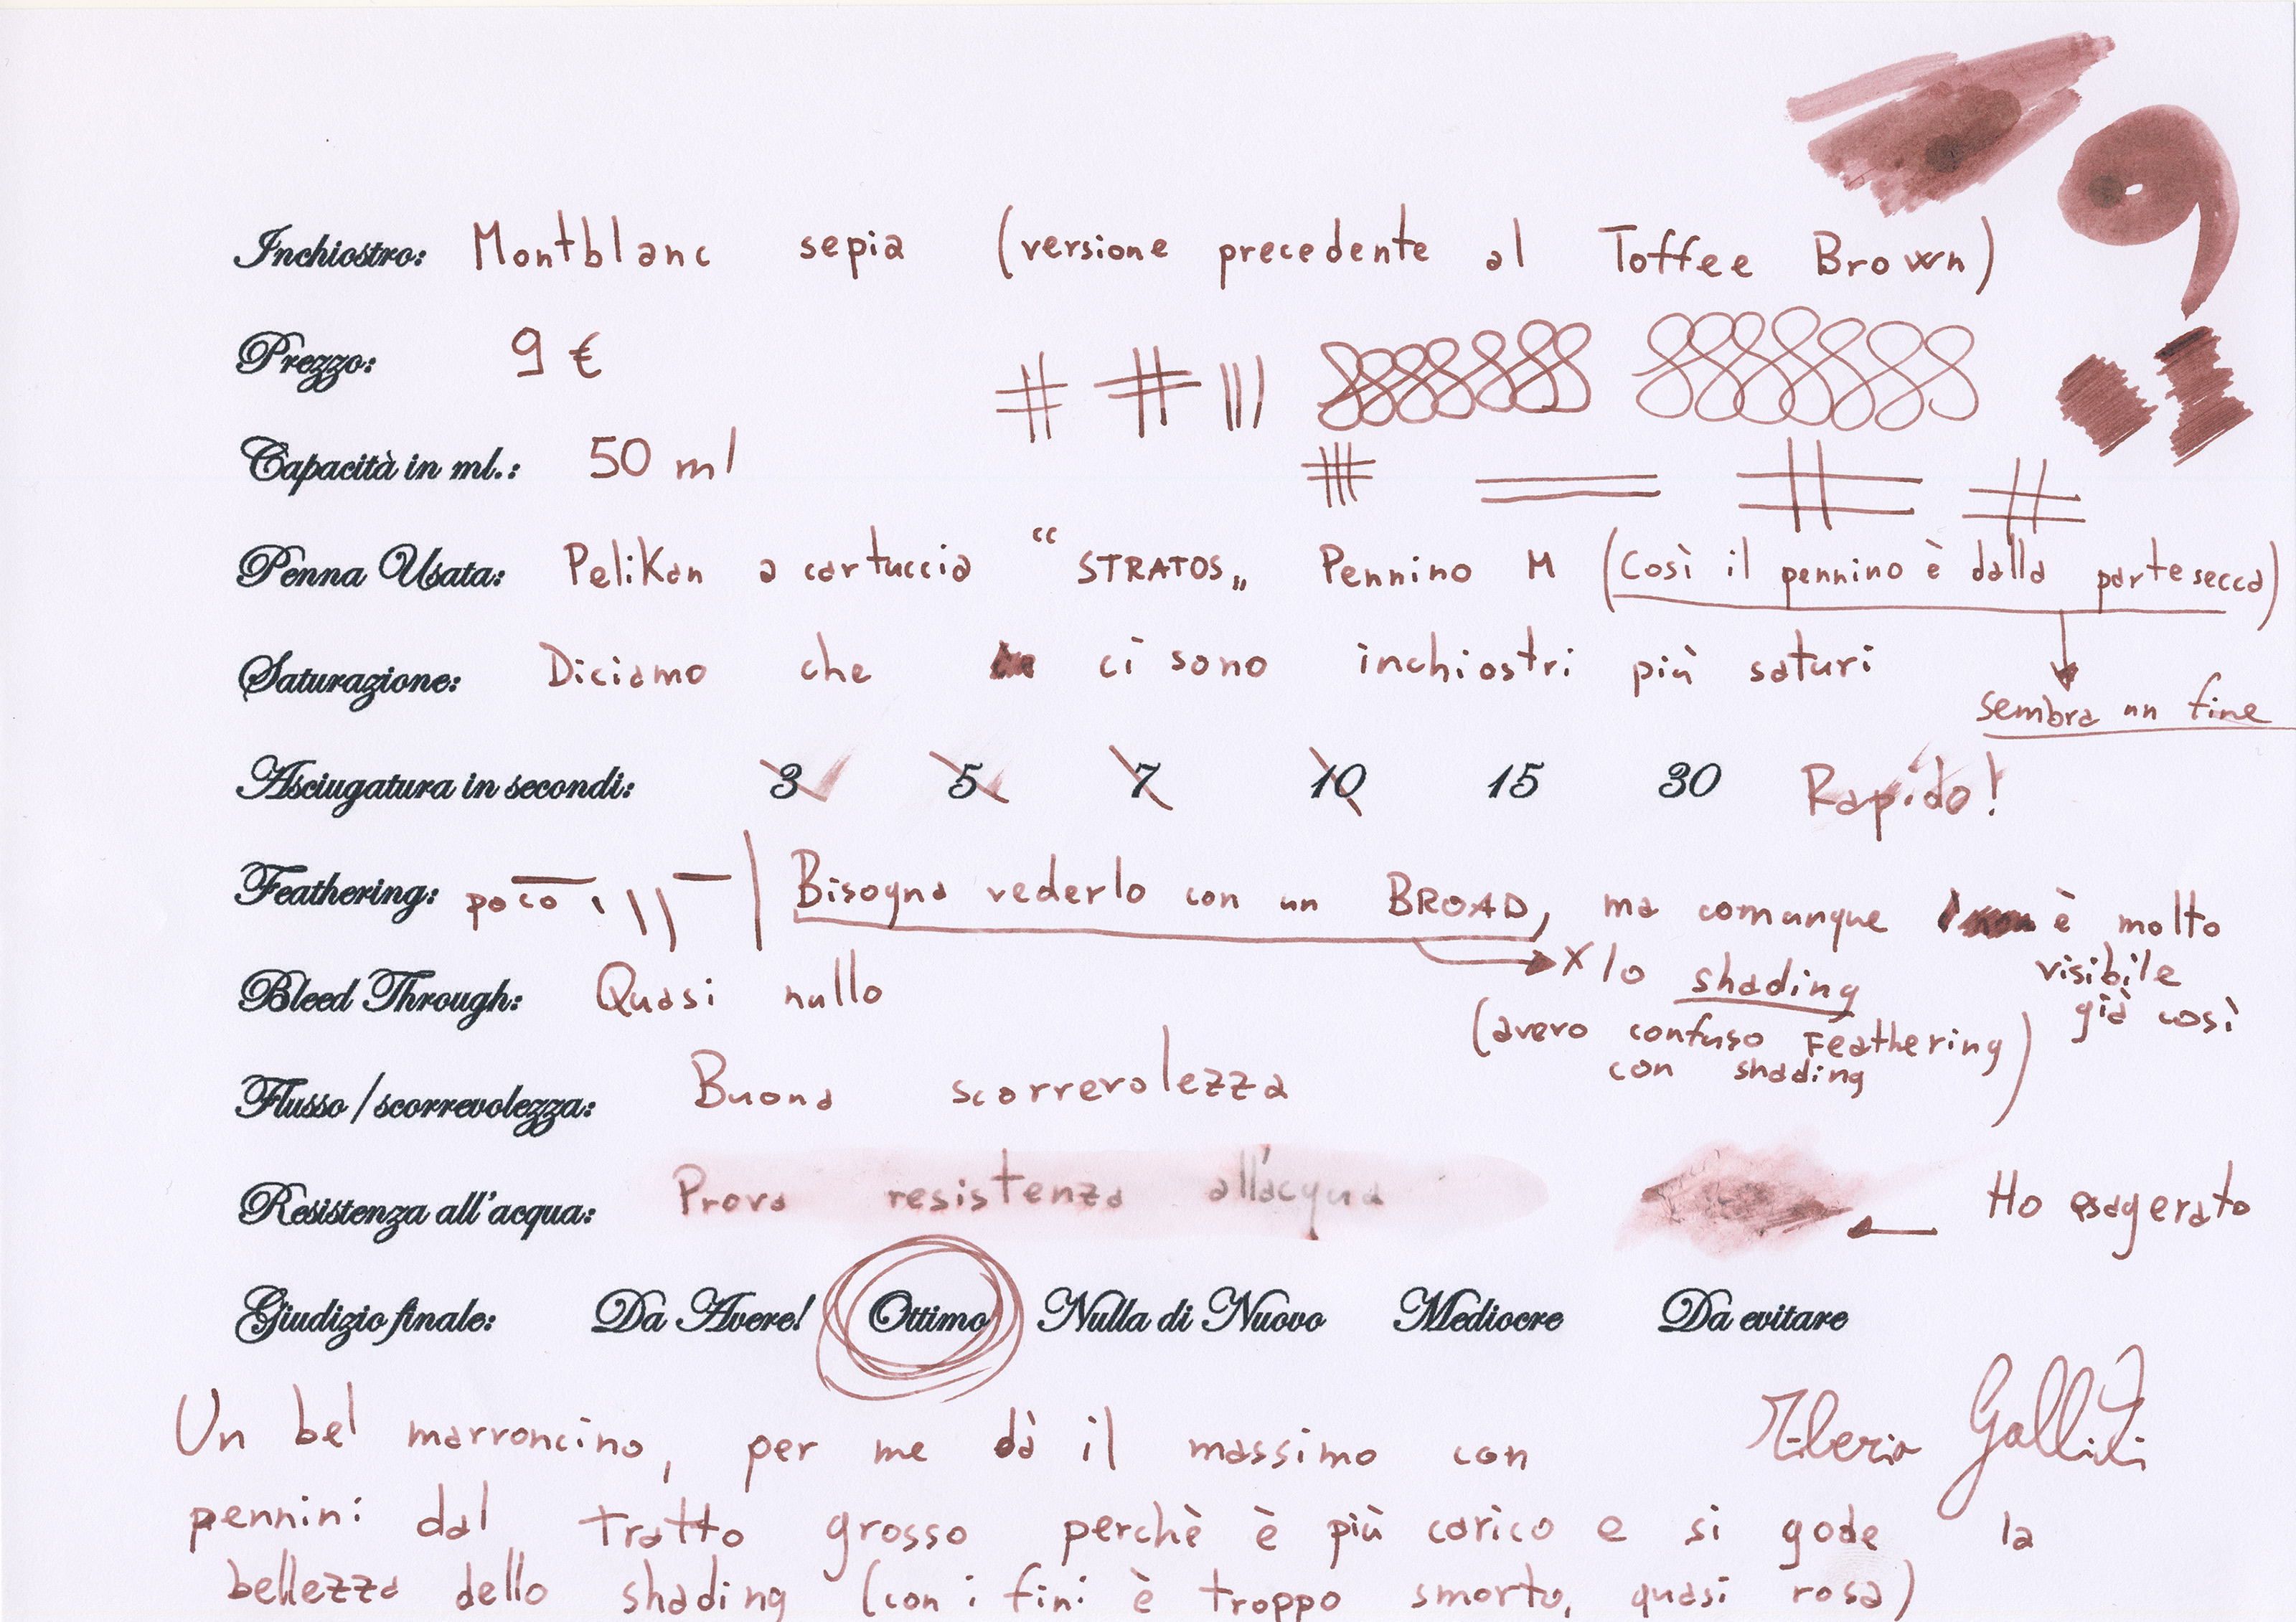 Inchiostro: Montblanc sepia (versione precedente al Toffee Brown)
Prezzo: 9 €
Capacità in ml.: 50 ml
Penna Usata: Pelikan a cartuccia “STRATOS„ Pennino M (Così il pennino è dalla parte secca)
sembra un fine
Saturazione: Diciamo che ci sono inchiostri più saturi
Asciugatura in secondi: 3 5 7 10 15 30 Rapido!
Feathering: poco Bisogna vederlo con un BROAD, ma comunque è molto
visibile
già così
x lo shading
(avevo confuso Feathering
con shading)
Bleed Through: Quasi nullo
Flusso / scorrevolezza: Buona scorrevolezza
Resistenza all'acqua: Prova resistenza all'acqua Ho esagerato
Giudizio finale: Da Avere! Ottimo Nulla di Nuovo Mediocre Da evitare
Un bel marroncino, per me dà il massimo con
pennini dal tratto grosso perchè è più carico e si gode la
bellezza dello shading (con i fini è troppo smorto, quasi rosa)